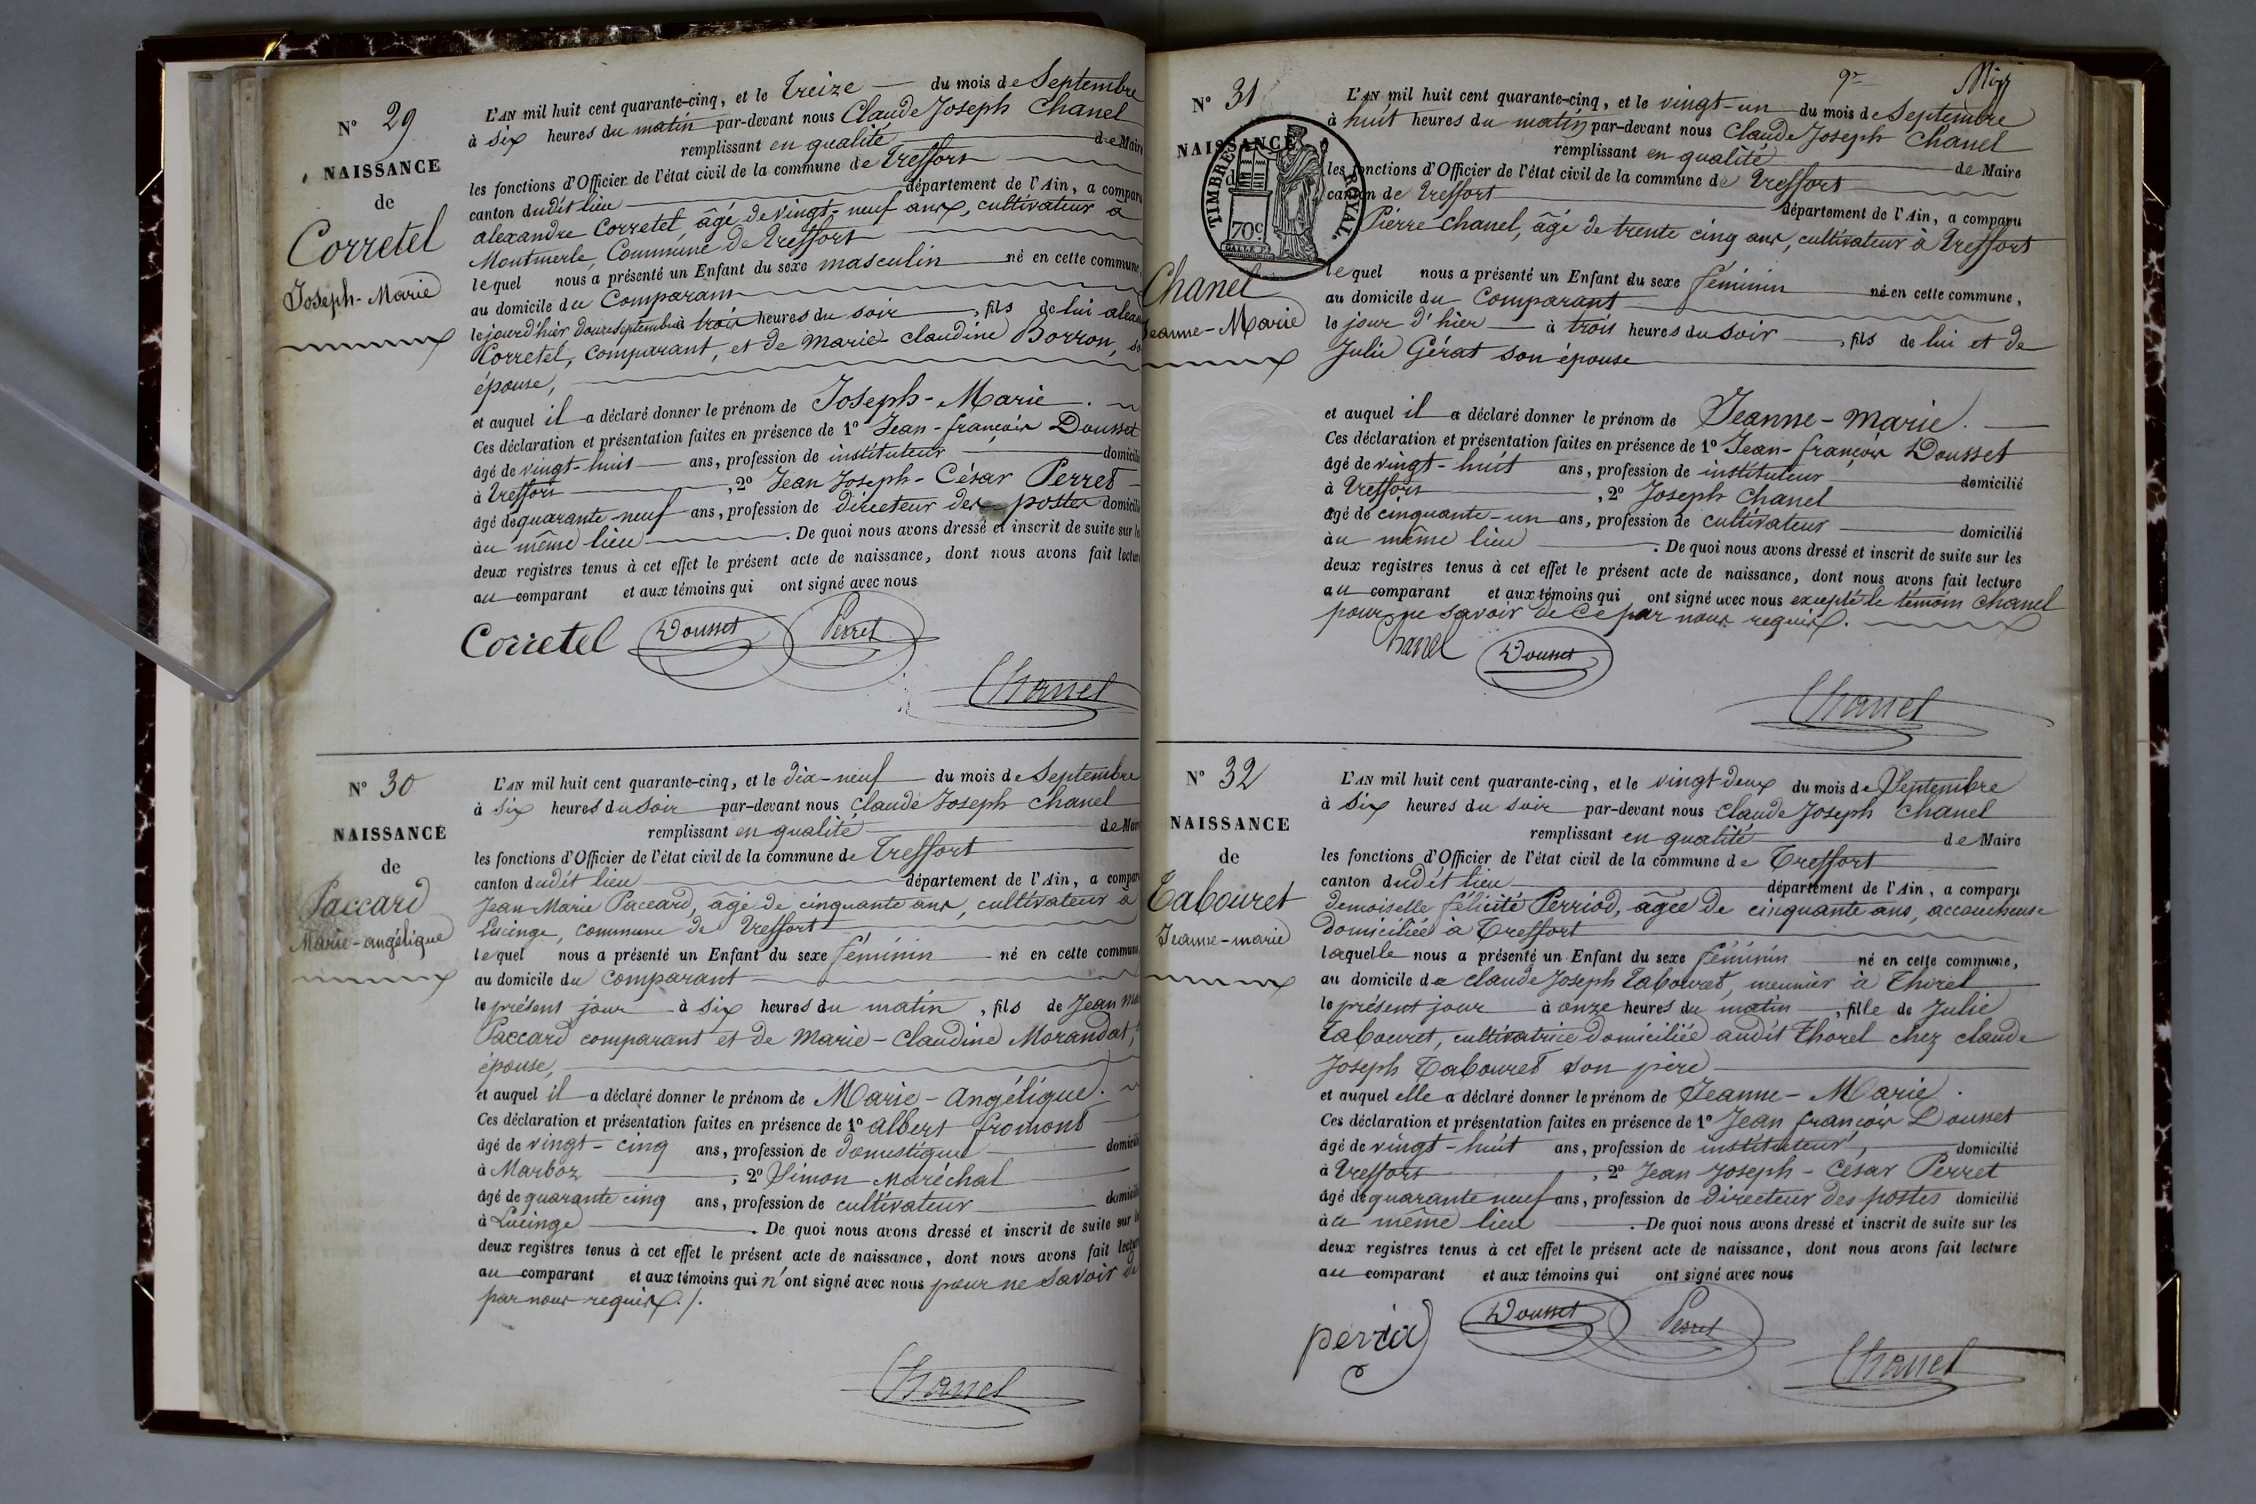 N° 29
NAISSANCE
de
Corretel
Joseph-Marie
L'AN mil huit cent quarante-cinq, et le treize du mois de Septembre
à six heures du matin par-devant nous Claude Joseph Chanel
remplissant en qualité de Maire
les fonctions d'Officier de l'état civil de la commune de Treffort
canton dudit lieu département de l'Ain, a comparu
alexandre Corretel, âgé de vingt-neuf ans, cultivateur à
Montmerle, Commune de Treffort
lequel nous a présenté un Enfant du sexe masculin né en cette commune,
au domicile du Comparant
le jour d'hier douze septembre à trois heures du soir, fils de lui
Corretel, comparant, et de Marie-Claudine Borron,
épouse,
et auquel il a déclaré donner le prénom de Joseph-Marie.
Ces déclaration et présentation faites en présence de 1° Jean-françois Dousset
âgé de vingt-huit ans, profession de instituteur domicilié
à Treffort, 2° Jean Joseph-César Perret
âgé de quarante-neuf ans, profession de directeur des postes domicilié
à u même lieu. De quoi nous avons dressé et inscrit de suite sur le
deux registres tenus à cet effet le présent acte de naissance, dont nous avons fait lecture
au comparant et aux témoins qui ont signé avec nous
Corretel Dousset Perret
Chanel
N° 30
NAISSANCE
de
Paccard
Marie-angélique
L'AN mil huit cent quarante-cinq, et le dix-neuf du mois de Septembre
à six heures du soir par-devant nous Claude Joseph Chanel
remplissant en qualité de Mair
les fonctions d'Officier de l'état civil de la commune de Treffort
canton dudit lieu département de l'Ain, a compar
Jean-Marie Paccard, âgé de cinquante ans, cultivateur à
Lucinge, commune de Treffort
lequel nous a présenté un Enfant du sexe féminin né en cette commune
au domicile du comparant
le présent jour à six heures du matin, fils de Jean Ma
Paccard comparant et de Marie-Claudine Morandat,
épouse,
et auquel il a déclaré donner le prénom de Marie-Angélique.
Ces déclaration et présentation faites en présence de 1° albert fromont
âgé de vingt-cinq ans, profession de domestique domicilié
à Marboz, 2° Simon Maréchal
âgé de quarante cinq ans, profession de cultivateur domicilié
à Lucinge. De quoi nous avons dressé et inscrit de suite sur le
deux registres tenus à cet effet le présent acte de naissance, dont nous avons fait lecture
au comparant et aux témoins qui n'ont signé avec nous pour ne savoir de
par nous requis./.
Chanel
9e
N° 31
NAISSANCE
TIMBRE ROYAL.
70c
Chanel
Jeanne-Marie
L'AN mil huit cent quarante-cinq, et le vingt-un du mois de Septembre
à huit heures du matin par-devant nous Claude Joseph Chanel
remplissant en qualité de Maire
les fonctions d'Officier de l'état civil de la commune de Treffort
canton de Treffort département de l'Ain, a comparu
Pierre Chanel, âgé de trente cinq ans, cultivateur à Treffort
lequel nous a présenté un Enfant du sexe féminin né en cette commune,
au domicile du comparant
le jour d'hier à trois heures du soir, fils de lui et de
Julie Gérat son épouse
et auquel il a déclaré donner le prénom de Jeanne-Marie.
Ces déclaration et présentation faites en présence de 1° Jean-françois Dousset
âgé de vingt-huit ans, profession de instituteur domicilié
à Treffort, 2° Joseph Chanel
âgé de cinquante-un ans, profession de cultivateur domicilié
à u même lieu. De quoi nous avons dressé et inscrit de suite sur les
deux registres tenus à cet effet le présent acte de naissance, dont nous avons fait lecture
au comparant et aux témoins qui ont signé avec nous excepté le témoin Chanel
pour ne savoir de ce par nous requis.
Chanel Dousset
Chanel
N° 32
NAISSANCE
de
Tabouret
Jeanne-marie
L'AN mil huit cent quarante-cinq, et le vingt-deux du mois de Septembre
à six heures du soir par-devant nous Claude Joseph Chanel
remplissant en qualité de Maire
les fonctions d'Officier de l'état civil de la commune de Treffort
canton dudit lieu département de l'Ain, a comparu
demoiselle félicité Perriod, âgée de cinquante ans, accoucheuse
domiciliée à Treffort
laquelle nous a présenté un Enfant du sexe féminin né en cette commune,
au domicile de Claude Joseph Tabouret, meunier à Thorel
le présent jour à onze heures du matin, fille de Julie
Tabouret, cultivatrice domiciliée audit Thorel chez claude
Joseph Tabouret son père
et auquel elle a déclaré donner le prénom de Jeanne-Marie.
Ces déclaration et présentation faites en présence de 1° Jean françois Dousset
âgé de vingt-huit ans, profession de instituteur, domicilié
à Treffort, 2° Jean Joseph-César Perret
âgé de quarante neuf ans, profession de directeur des postes domicilié
à u même lieu. De quoi nous avons dressé et inscrit de suite sur les
deux registres tenus à cet effet le présent acte de naissance, dont nous avons fait lecture
au comparant et aux témoins qui ont signé avec nous
Dousset Perret
Chanel